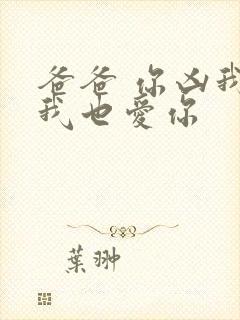 爸爸 你凶我
我也愛你
葉翀